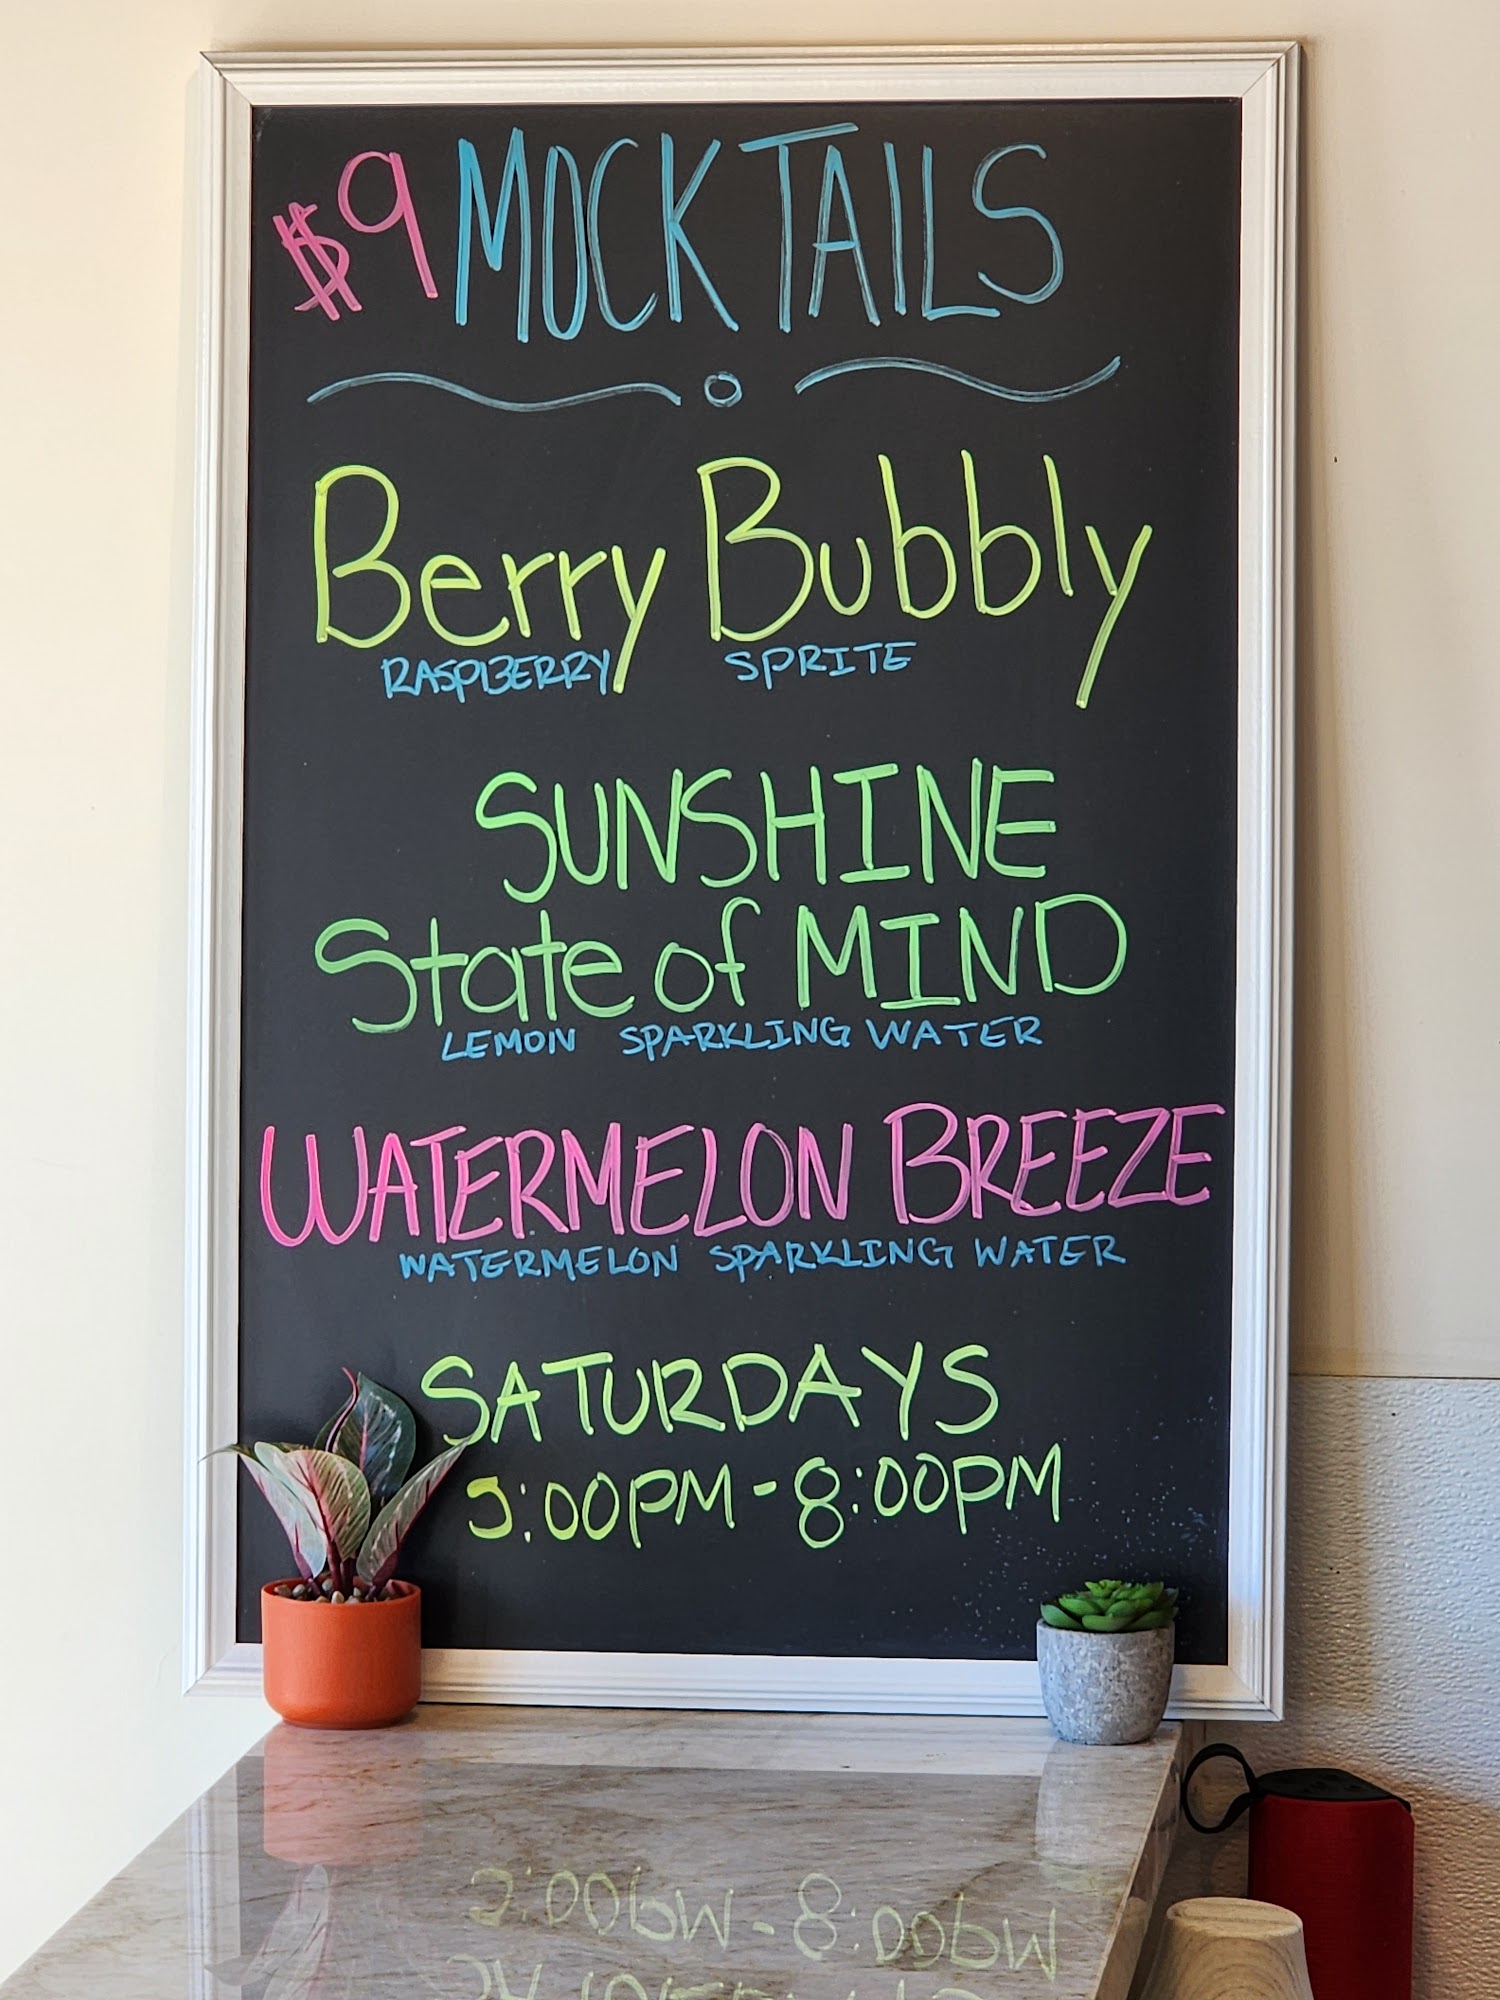 $9 MOCKTAILS
Berry Bubbly
RASPBERRY SPRITE
SUNSHINE
State of MIND
LEMON SPARKLING WATER
WATERMELON BREEZE
WATERMELON SPARKLING WATER
SATURDAYS
5:00PM - 8:00PM